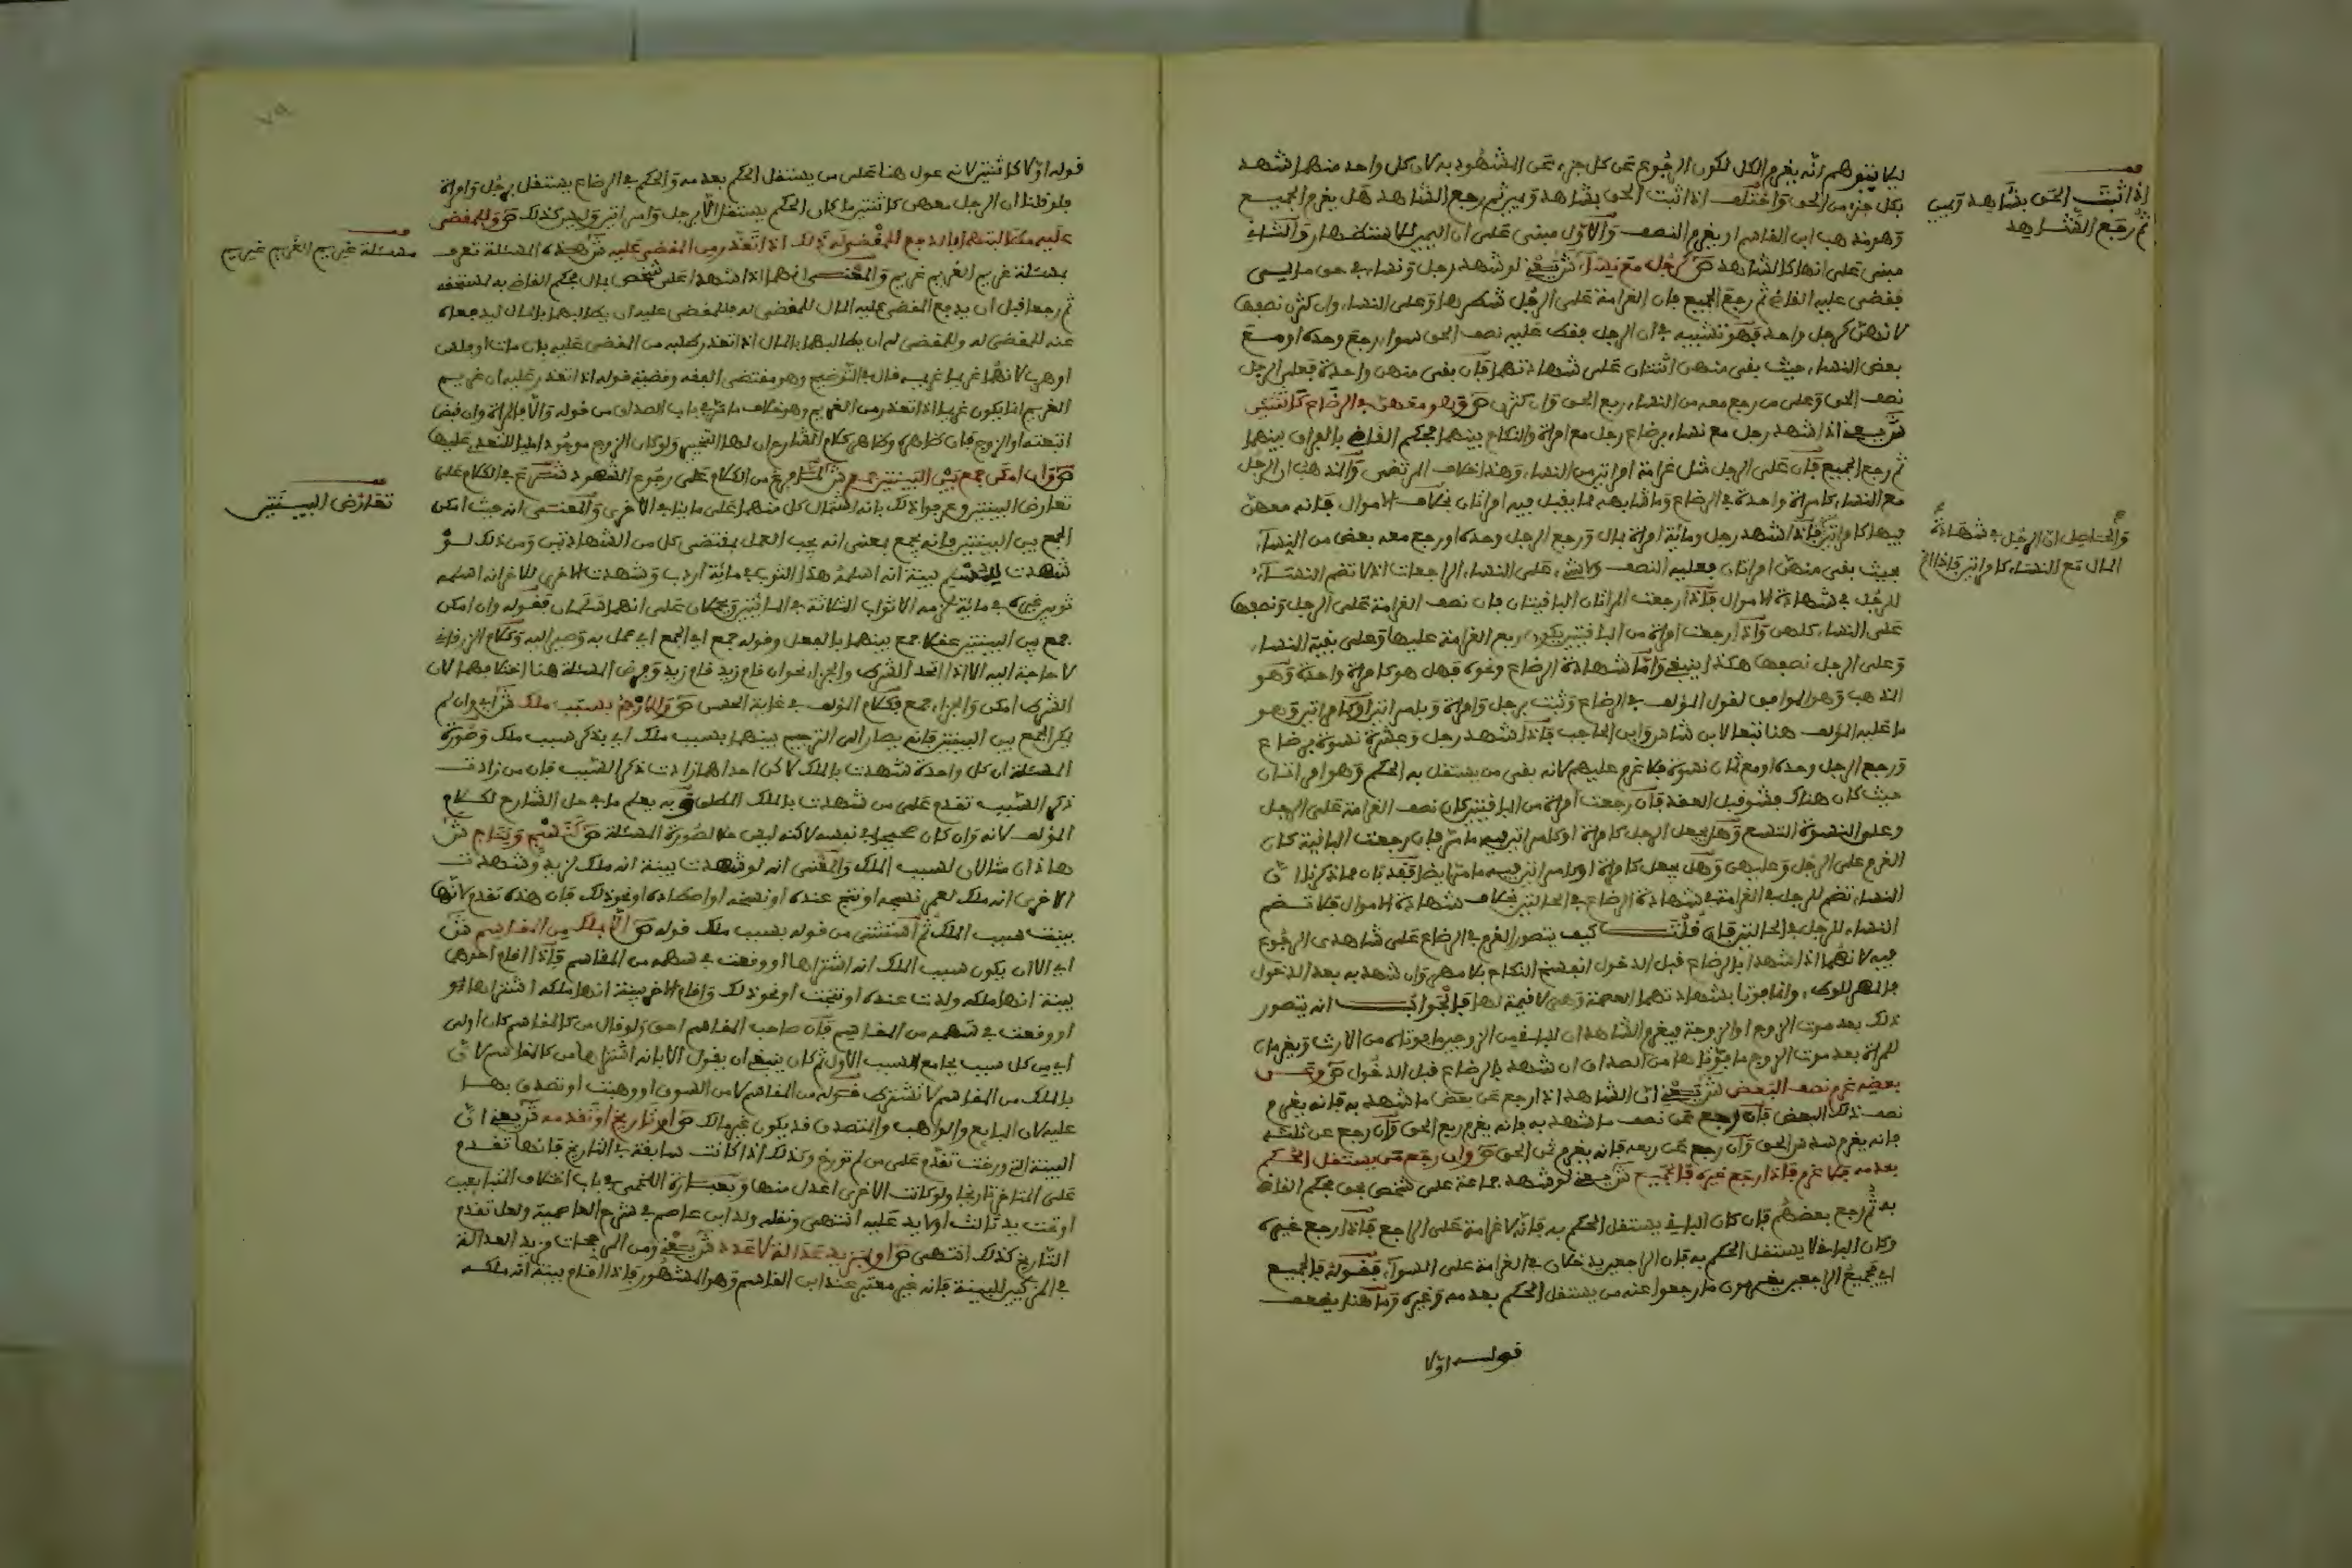 ليلا يتوهم أنه يغرم الكل لكون الرجوع عن كل جزء عن المشهود به لان كل واحد منهما شهد
بكل جزء من الحق واختلف اذا ثبت الحق بشاهد ويمين ثم رجع الشاهد هل يغرم الجميع
وهو مذهب ابن القاسم او يغرم النصف والأول مبني على ان اليمين والثاني
مبني على انها كالشاهد ص كرجل مع نساء ش يعني لو شهد رجل ونساء في حق مالي
فقضى عليه القاضي ثم رجع الجميع فان الغرامة على الرجل شطرها وعلى النساء وان كثرن نصفها
لانهن كرجل واحد فهو تشبيه في ان الرجل فقط عليه نصف الحق سواء رجع وحده او مع
بعض النساء حيث بقى منهن اثنتان على شهادتهما فان بقى منهن واحدة فعلى الرجل
نصف الحق وعلى من رجع معه من النساء ربع الحق وان كثرن ص وهو معهن في الرضاع كاثنتين
ش يعني اذا شهد رجل مع نساء برضاع رجل مع امراة والنكاح بينهما فحكم القاضي بالفراق بينهما
ثم رجع الجميع فان على الرجل مثل غرامة امراتين من النساء وهذا خلاف المرتضى والمذهب ان الرجل
مع النساء كامراة واحدة في الرضاع وما شابهه مما يقبل فيه امراتان بخلاف الاموال فانه معهن
فيها كامراتين فاذا شهد رجل ومائة امراة بمال ورجع الرجل وحده او رجع معه بعض من النساء
بحيث بقى منهن امراتان فعليه النصف ولا شيء على النساء الراجعات اذ لا تضم النساء
للرجل في شهادة الاموال فاذا رجعت المراتان الباقيتان فان نصف الغرامة على الرجل ونصفها
على النساء كلهن واذا رجعت امراة من الباقيتين يكون ربع الغرامة عليها وعلى بقية النساء
وعلى الرجل نصفها هكذا ينبغي واما شهادة الرضاع ونحوه فهل هو كامراة واحدة وهو
المذهب وهو الموافق لقول المؤلف في الرضاع وثبت برجل وامراة وبامراتين او كامراتين وهو
ما عليه المؤلف هنا تبعا لابن شاس وابن الحاجب فاذا شهد رجل وعشرة نسوة برضاع
ورجع الرجل وحده او مع ثمان نسوة فلا غرم عليهم لانه بقى من يستقل به الحكم وهو امراتان
حيث كان هناك فشو قبل العقد فان رجعت امراة من الباقيتين كان نصف الغرامة على الرجل
وعلى النسوة التسع وهل يجعل الرجل كامراة او كامراتين فيه ما مر فان رجعت الباقية كان
الغرم على الرجل وعليهن وهل يجعل كامراة او كامراتين فيه ما مر ايضا فقد بان مما ذكرنا ان
النساء تضم للرجل في الغرامة في شهادة الرضاع في الحالتين بخلاف شهادة الاموال فلا تضم
النساء للرجل في الحالتين فان قلت كيف يتصور الغرم في الرضاع على شاهدي الرجوع
فيه لانهما اذا شهدا بالرضاع قبل الدخول انفسخ النكاح بلا مهر وان شهد به بعد الدخول
فالمهر للوطء وانما فوتا بشهادتهما العصمة وهي لا قيمة لها فالجواب انه يتصور
ذلك بعد موت الزوج او الزوجة فيغرم الشاهدان للباقي من الزوجين ما فوتاه من الارث ويغرمان
للمراة بعد موت الزوج ما فوتاها من الصداق ان شهد بالرضاع قبل الدخول ص وعن
بعضه غرم نصف البعض ش يعني ان الشاهد اذا رجع عن بعض ما شهد به فانه يغرم
نصف ذلك البعض فان رجع عن نصف ما شهد به فانه يغرم ربع الحق وان رجع عن ثلثه
فانه يغرم سدس الحق وان رجع عن ربعه فانه يغرم ثمن الحق ص وان رجع من يستقل الحكم
بعدمه فلا غرم فاذا رجع غيره فالجميع ش يعني لو شهد جماعة على شخص بحق فحكم القاضي
به ثم رجع بعضهم فان كان الباقي يستقل الحكم به فانه لا غرامة على الراجع فاذا رجع غيره
وكان الباقي لا يستقل الحكم به فان الراجعين يدخلان في الغرامة على السواء فقوله فالجميع
اي فجميع الراجعين يغرمون ما رجعوا عنه من يستقل الحكم بعدمه وغيره وما هنا يضعف
قوله اولا
اذا ثبت الحق بشاهد ويمين
ثم رجع الشاهد
والحاصل ان الرجل في شهادة
المال مع النساء كامراتين فاذا الخ
قوله اولا كاثنتين لانه عول هنا على من يستقل الحكم بعدمه والحكم في الرضاع يستقل برجل وامراة
فلو قلنا ان الرجل معهن كاثنتين ما كان الحكم يستقل الا برجل وامراتين وليس كذلك ص وللمقضي
عليه مطالبتهما بالدفع للمقضي له وله ذلك اذا تعذر من المقضي عليه ش هذه المسئلة تعرف
بمسئلة غريم الغريم غريم والمعنى انهما اذا شهدا على شخص بمال فحكم القاضي به لمستحقه
ثم رجعا قبل ان يدفع المقضي عليه المال للمقضي له فللمقضي عليه ان يطالبهما بالمال ليدفعاه
عنه للمقضي له وللمقضي له ان يطالبهما بالمال اذا تعذر طلبه من المقضي عليه بان مات او فلس
او هرب لانهما غريما غريمه قال في التوضيح وهو مقتضى الفقه وقضية قوله اذا تعذر عليه ان غريم
الغريم انما يكون غريما اذا تعذر من الغريم وهو خلاف ما مر في باب الصداق من قوله والا فالمراة وان قبض
اتبعته او الزوج فان ظاهره وظاهر كلام الشارح ان لها التخيير ولو كان الزوج موجودا مليا
ص وان امكن جمع بين البينتين جمع ش لما فرغ من الكلام على رجوع الشهود شرع في الكلام على
تعارض البينتين وعرفوا ذلك بانه اشتمال كل منهما على ما ينافي الاخرى والمعنى انه حيث امكن
الجمع بين البينتين فانه يجمع بمعنى انه يجب العمل بمقتضى كل من الشهادتين ومن ذلك لو
شهدت بينة انه اسلم هذا الثوب في مائة اردب وشهدت الاخرى للاخر انه اسلمه
ثوبين غيره في مائة لزمه الاثواب الثلاثة في المائتين ويحملان على انهما سلمان فقوله وان امكن
جمع بين البينتين عقلا جمع بينهما بالفعل وقوله جمع اي الجمع اي عمل به وصير اليه وكلام الزرقاني
لا حاجة اليه الا اذا اتحد الشرط والجزاء نحو ان قام زيد قام زيد وفرض المسئلة هنا اختلافهما لان
الشرط امكن والجزاء جمع فكلام المؤلف في غاية الحسن ص والا رجح بسبب ملك ش اي وان لم
يمكن الجمع بين البينتين فانه يصار الى الترجيح بينهما بسبب ملك اي بذكر سبب ملك وصورة
المسئلة ان كل واحدة شهدت بالملك لاكن احداهما زادت ذكر السبب فان من زادت
ذكر السبب تقدم على من شهدت بالملك المطلق وبه يعلم ما في حل الشارح لكلام
المؤلف لانه وان كان صحيحا في نفسه لاكنه ليس حلا لصورة المسئلة ص كنسج ونتاج ش
هاذان مثالان لسبب الملك والمعنى انه لو شهدت بينة انه ملك لزيد وشهدت
الاخرى انه ملك لعمر نسجه او نتج عنده او نسخه او اصطاده او نحو ذلك فان هذه تقدم لانها
بينت سبب الملك ثم استثنى من قوله بسبب ملك قوله ص الا بملك من المقاسم ش
اي الا ان يكون سبب الملك انه اشتراها او وقعت في سهمه من المقاسم فاذا اقام احدهما
بينة انها ملكه ولدت عنده او نتجت او نحو ذلك واقام الاخر بينة انها ملكه اشتراها
او وقعت في سهمه من المقاسم فان صاحب المقاسم احق ولو قال من كالمقاسم كان اولى
اي من كل سبب يجامع السبب الاول ثم كان ينبغي ان يقول الا بانه اشتراها من كالمقاسم لان
بالملك من المقاسم لا تشترط فقوله من المقاسم لا من السوق او وهبت او تصدق بها
عليه لان البايع والواهب والمتصدق قد يكون غير مالك ص او تاريخ او تقدمه ش يعني ان
البينة التي ورخت تقدم على من لم تورخ وكذلك اذا كانت سابقة في التاريخ فانها تقدم
على المتاخر تاريخا ولو كانت الاخرى اعدل منها وبعبارة اللخمي في باب اختلاف المتبايعين
او تحت يد ثالث او لا يد عليه انتهى ونقله ولد ابن عاصم في شرح العاصمية ولعل تقدم
التاريخ كذلك انتهى ص او بمزيد عدالة لا عدد ش يعني ومن المرجحات مزيد العدالة
في المزكيين للبينة فانه غير معتبر عند ابن القاسم وهو المشهور فاذا اقام بينة انه ملكه
مسئلة غريم الغريم غريم
تعارض البينتين